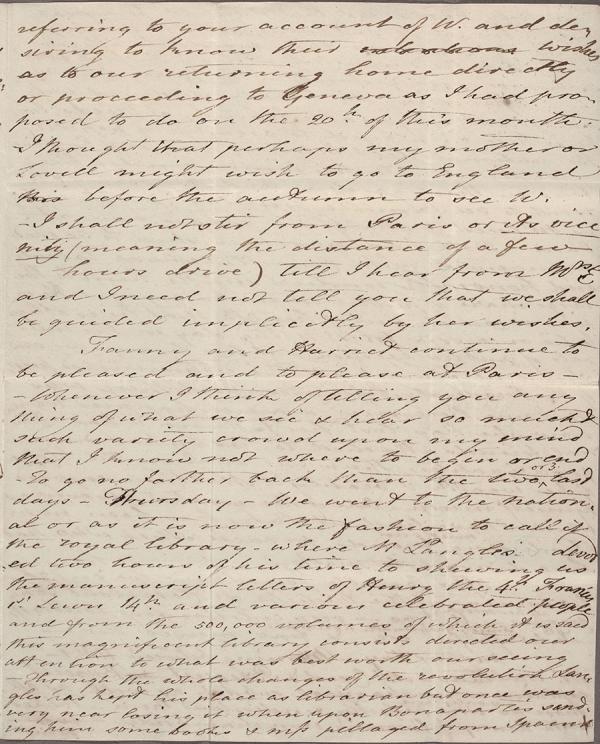 referring to your account of W. and de-
siring to know their wishes
as to our returning home directly
or proceeding to Geneva as I had pro-
posed to do on the 20th of this month.
I thought that perhaps my mother or
Lovell might wish to go to England
before the autumn to see W.
- I shall not stir from Paris or its vici
nity (meaning the distance of a few
hours drive) till I hear from Mrs E
and I need not tell you that we shall
be guided implicitly by her wishes.
Fanny and Harriet continue to
be pleased and to please at Paris -
- Whenever I think of telling you any
thing of what we see & hear so much &
such variety crowd upon my mind
that I know not where to begin or end
- To go no farther back than the two or 3 last
days - Thursday - We went to the nation-
al or as it is now the fashion to call it
the royal library - where Mr Langles devot
ed two hours of his time to shewing us
the manuscript letters of Henry the 4th Francis
1st Lewis 14th and various celebrated people
and from the 500,000 volumes of which it is said
this magnificent library consists directed our
attention to what was best worth our seeing
- Through the whole changes of the revolution Lan-
gles has kept his place as librarian but once was
very near losing it when upon Bonapartes send-
ing him some books & mss pillaged from Spain